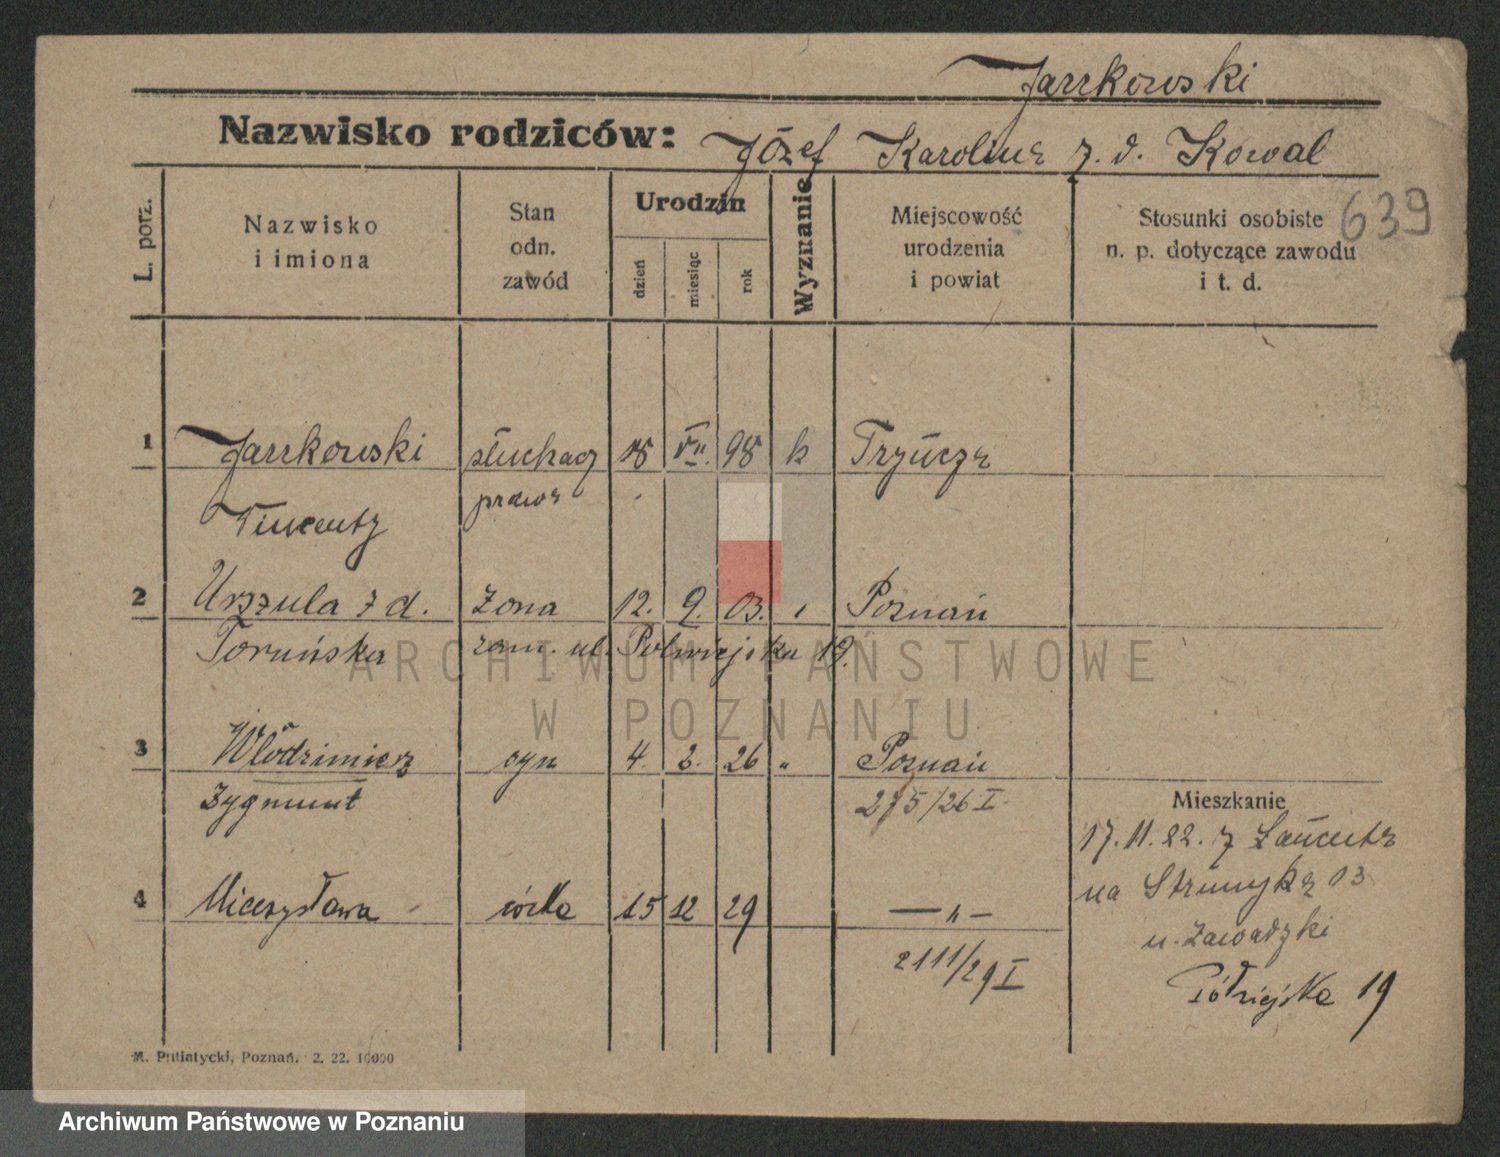 Jarrkowski
Nazwisko rodziców: Józef Karolina z. d. Kowal
639
L. porz.
Nazwisko i imiona
Stan odn. zawód
Urodzin
dzień
miesiąc
rok
Wyznanie
Miejscowość urodzenia i powiat
Stosunki osobiste n. p. dotyczące zawodu i t. d.
1 Jarrkowski słuchacz 18 VII. 98 k Tryńcza
Wincenty prawa
2 Urszula z d. żona 12. 9. 03. Poznań
Toruńska zam. ul. Półwiejska 19.
ARCHIWUM PAŃSTWOWE
W POZNANIU
3 Włodzimierz syn 4. 2. 26 „ Poznań
Zygmunt 275/26 I
4 Mieczysława córka 15 12 29 — „ —
2111/29 I
Mieszkanie
17. 11. 22. z Łańcuta
na Strumyka 13
u. Zawadzki
Półwiejska 19
M. Putiatycki, Poznań. 2. 22. 10000
Archiwum Państwowe w Poznaniu